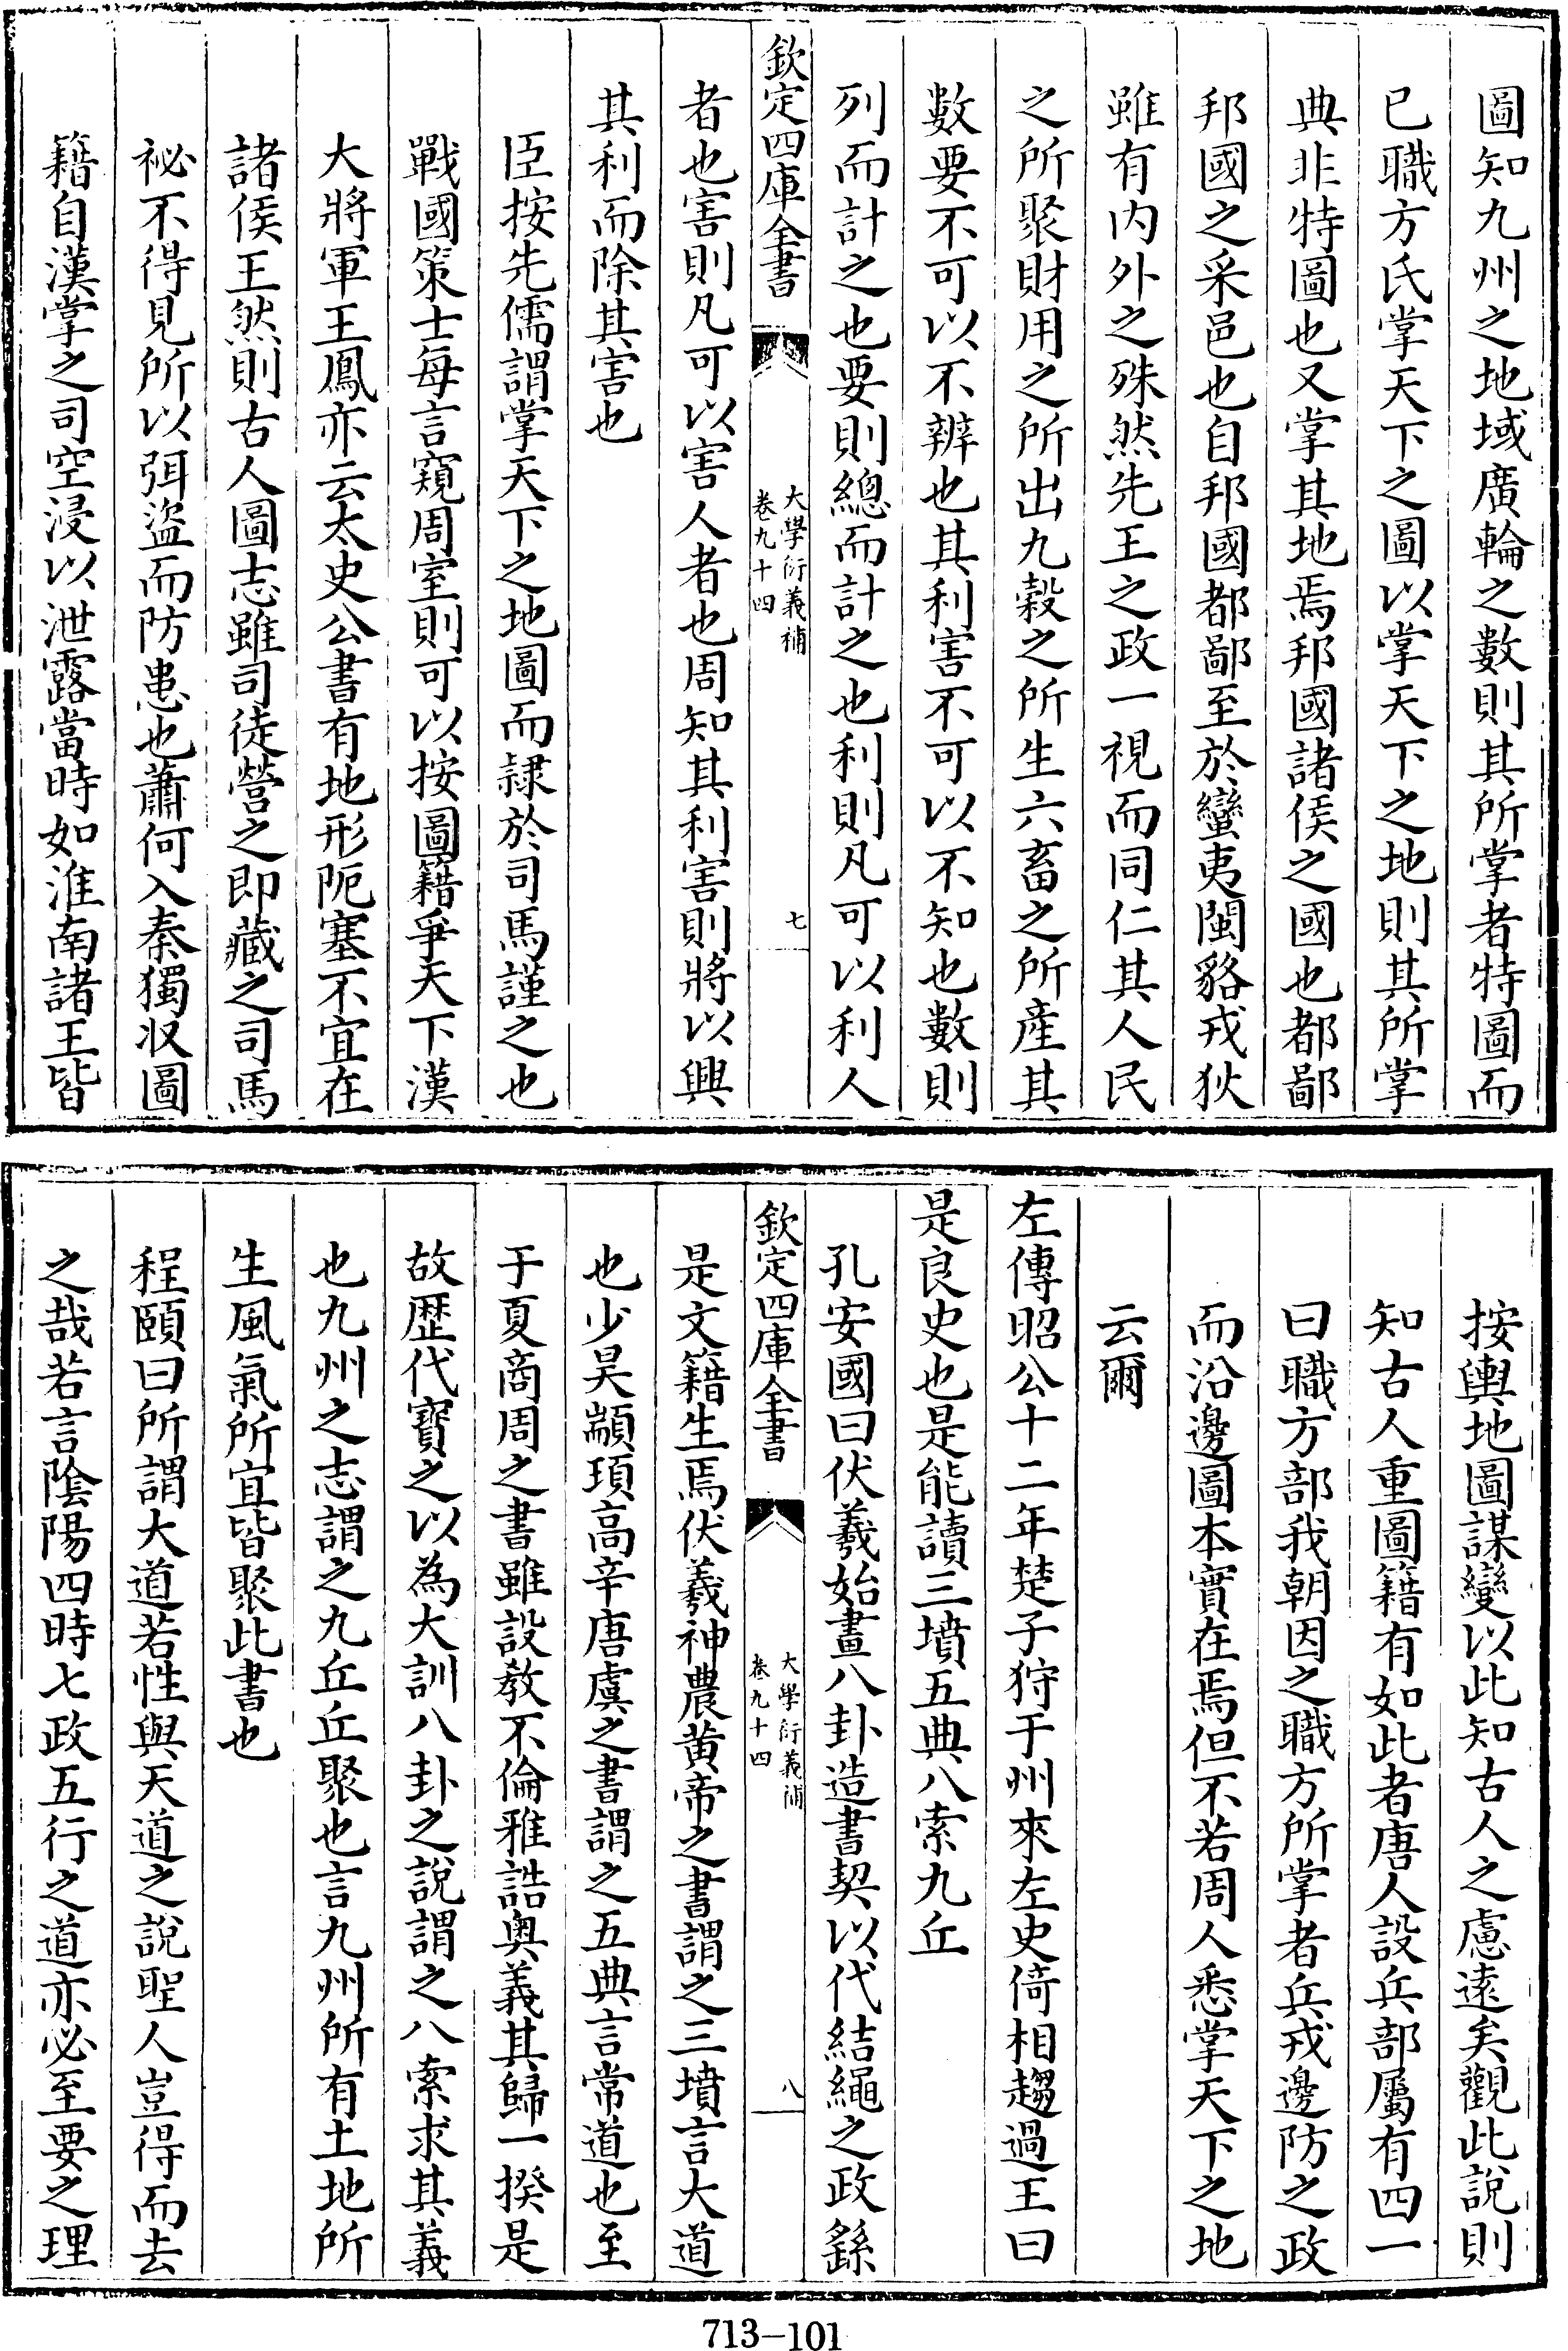 圖知九州之地域廣輪之數則其所掌者特圖而
已職方氏掌天下之圖以掌天下之地則其所掌
典非特圖也又掌其地焉邦國諸侯之國也都鄙
邦國之采邑也自邦國都鄙至於蠻夷閩貉戎狄
雖有内外之殊然先王之政一視而同仁其人民
之所聚財用之所出九穀之所生六畜之所産其
數要不可以不辨也其利害不可以不知也數則
列而計之也要則總而計之也利則凡可以利人
欽定四庫全書
大學衍義補
卷九十四
七
者也害則凡可以害人者也周知其利害則將以興
其利而除其害也
臣按先儒謂掌天下之地圖而隷於司馬謹之也
戰國策士每言窺周室則可以按圖籍爭天下漢
大將軍王鳳亦云太史公書有地形阨塞不宜在
諸侯王然則古人圖志雖司徒營之即藏之司馬
祕不得見所以弭盜而防患也蕭何入秦獨収圖
籍自漢掌之司空浸以泄露當時如淮南諸王皆
按輿地圖謀變以此知古人之慮遠矣觀此說則
知古人重圖籍有如此者唐人設兵部屬有四一
曰職方部我朝因之職方所掌者兵戎邊防之政
而沿邊圖本實在焉但不若周人悉掌天下之地
云爾
左傳昭公十二年楚子狩于州來左史倚相趨過王曰
是良史也是能讀三墳五典八索九丘
孔安國曰伏羲始畫八卦造書契以代結繩之政繇
欽定四庫全書
大學衍義補
卷九十四
八
是文籍生焉伏羲神農黄帝之書謂之三墳言大道
也少昊顓頊高辛唐虞之書謂之五典言常道也至
于夏商周之書雖設教不倫雅誥奥義其歸一揆是
故歴代寳之以為大訓八卦之說謂之八索求其義
也九州之志謂之九丘丘聚也言九州所有土地所
生風氣所宜皆聚此書也
程頤曰所謂大道若性與天道之說聖人豈得而去
之哉若言陰陽四時七政五行之道亦必至要之理
713-101